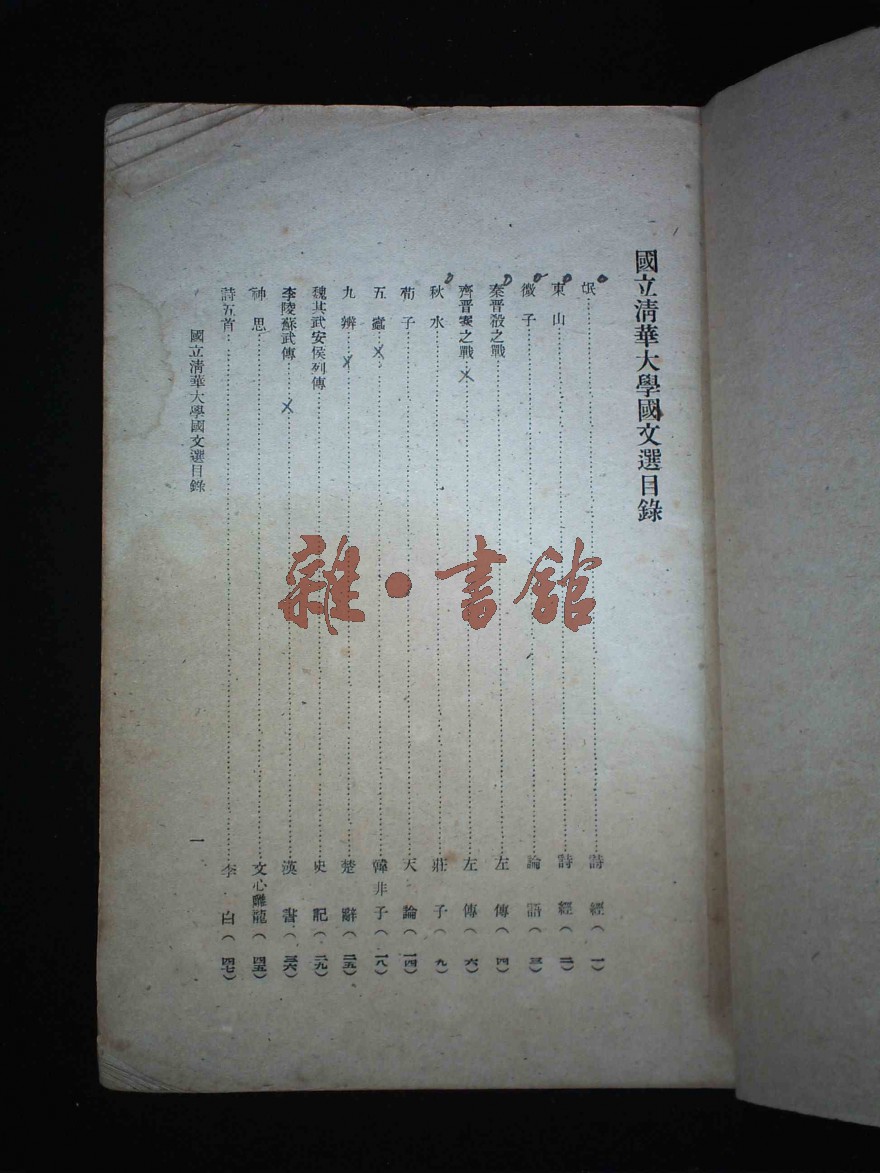 國立清華大學國文選目錄
氓……詩經(一)
東山……詩經(二)
微子……論語(三)
秦晋殽之戰……左傳(四)
齊晋鞌之戰……左傳(六)
秋水……莊子(九)
荀子……天論(一四)
五蠹……韓非子(一八)
九辨……楚辭(二五)
魏其武安侯列傳……史記(二九)
李陵蘇武傳……漢書(三六)
神思……文心雕龍(四五)
詩五首……李白(四七)
國立清華大學國文選目錄
一
雜·書館